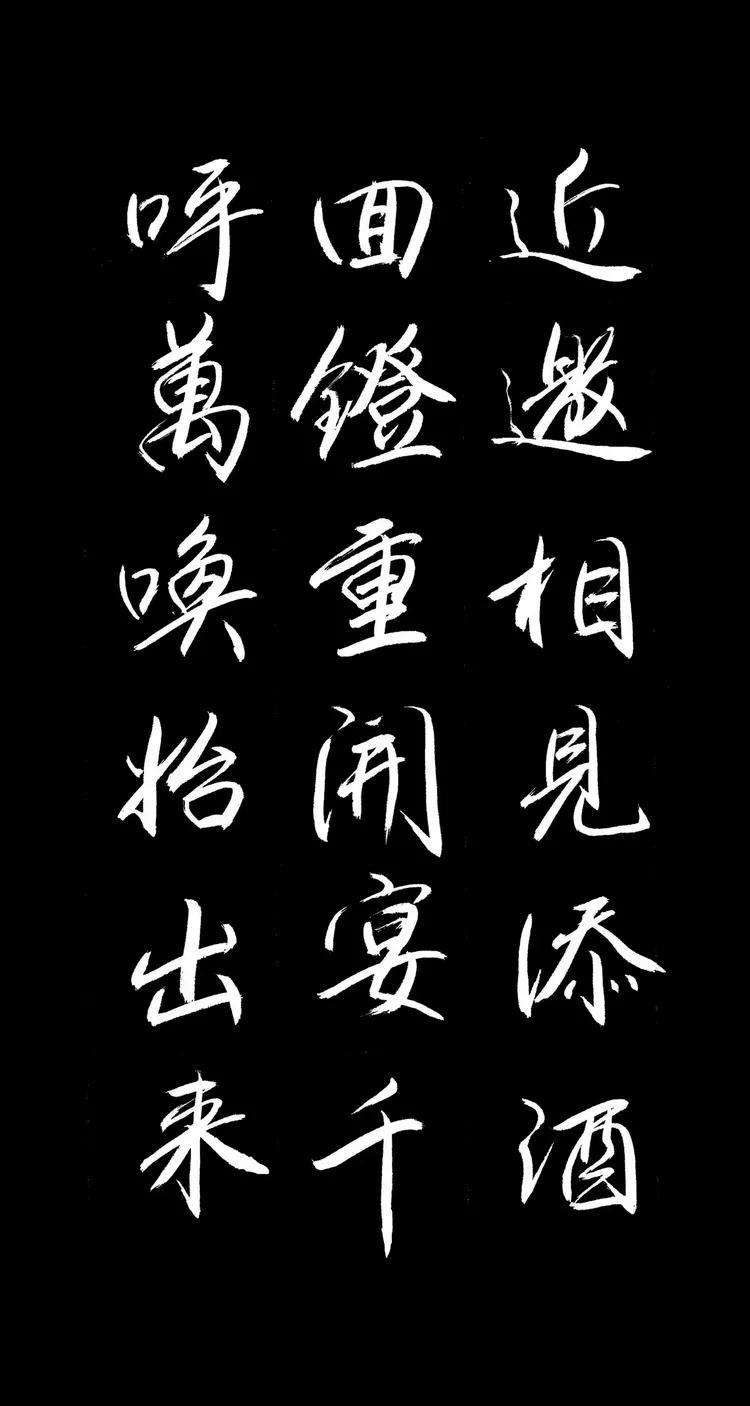 近邀相見添酒
回鐙重開宴千
呼萬喚始出来